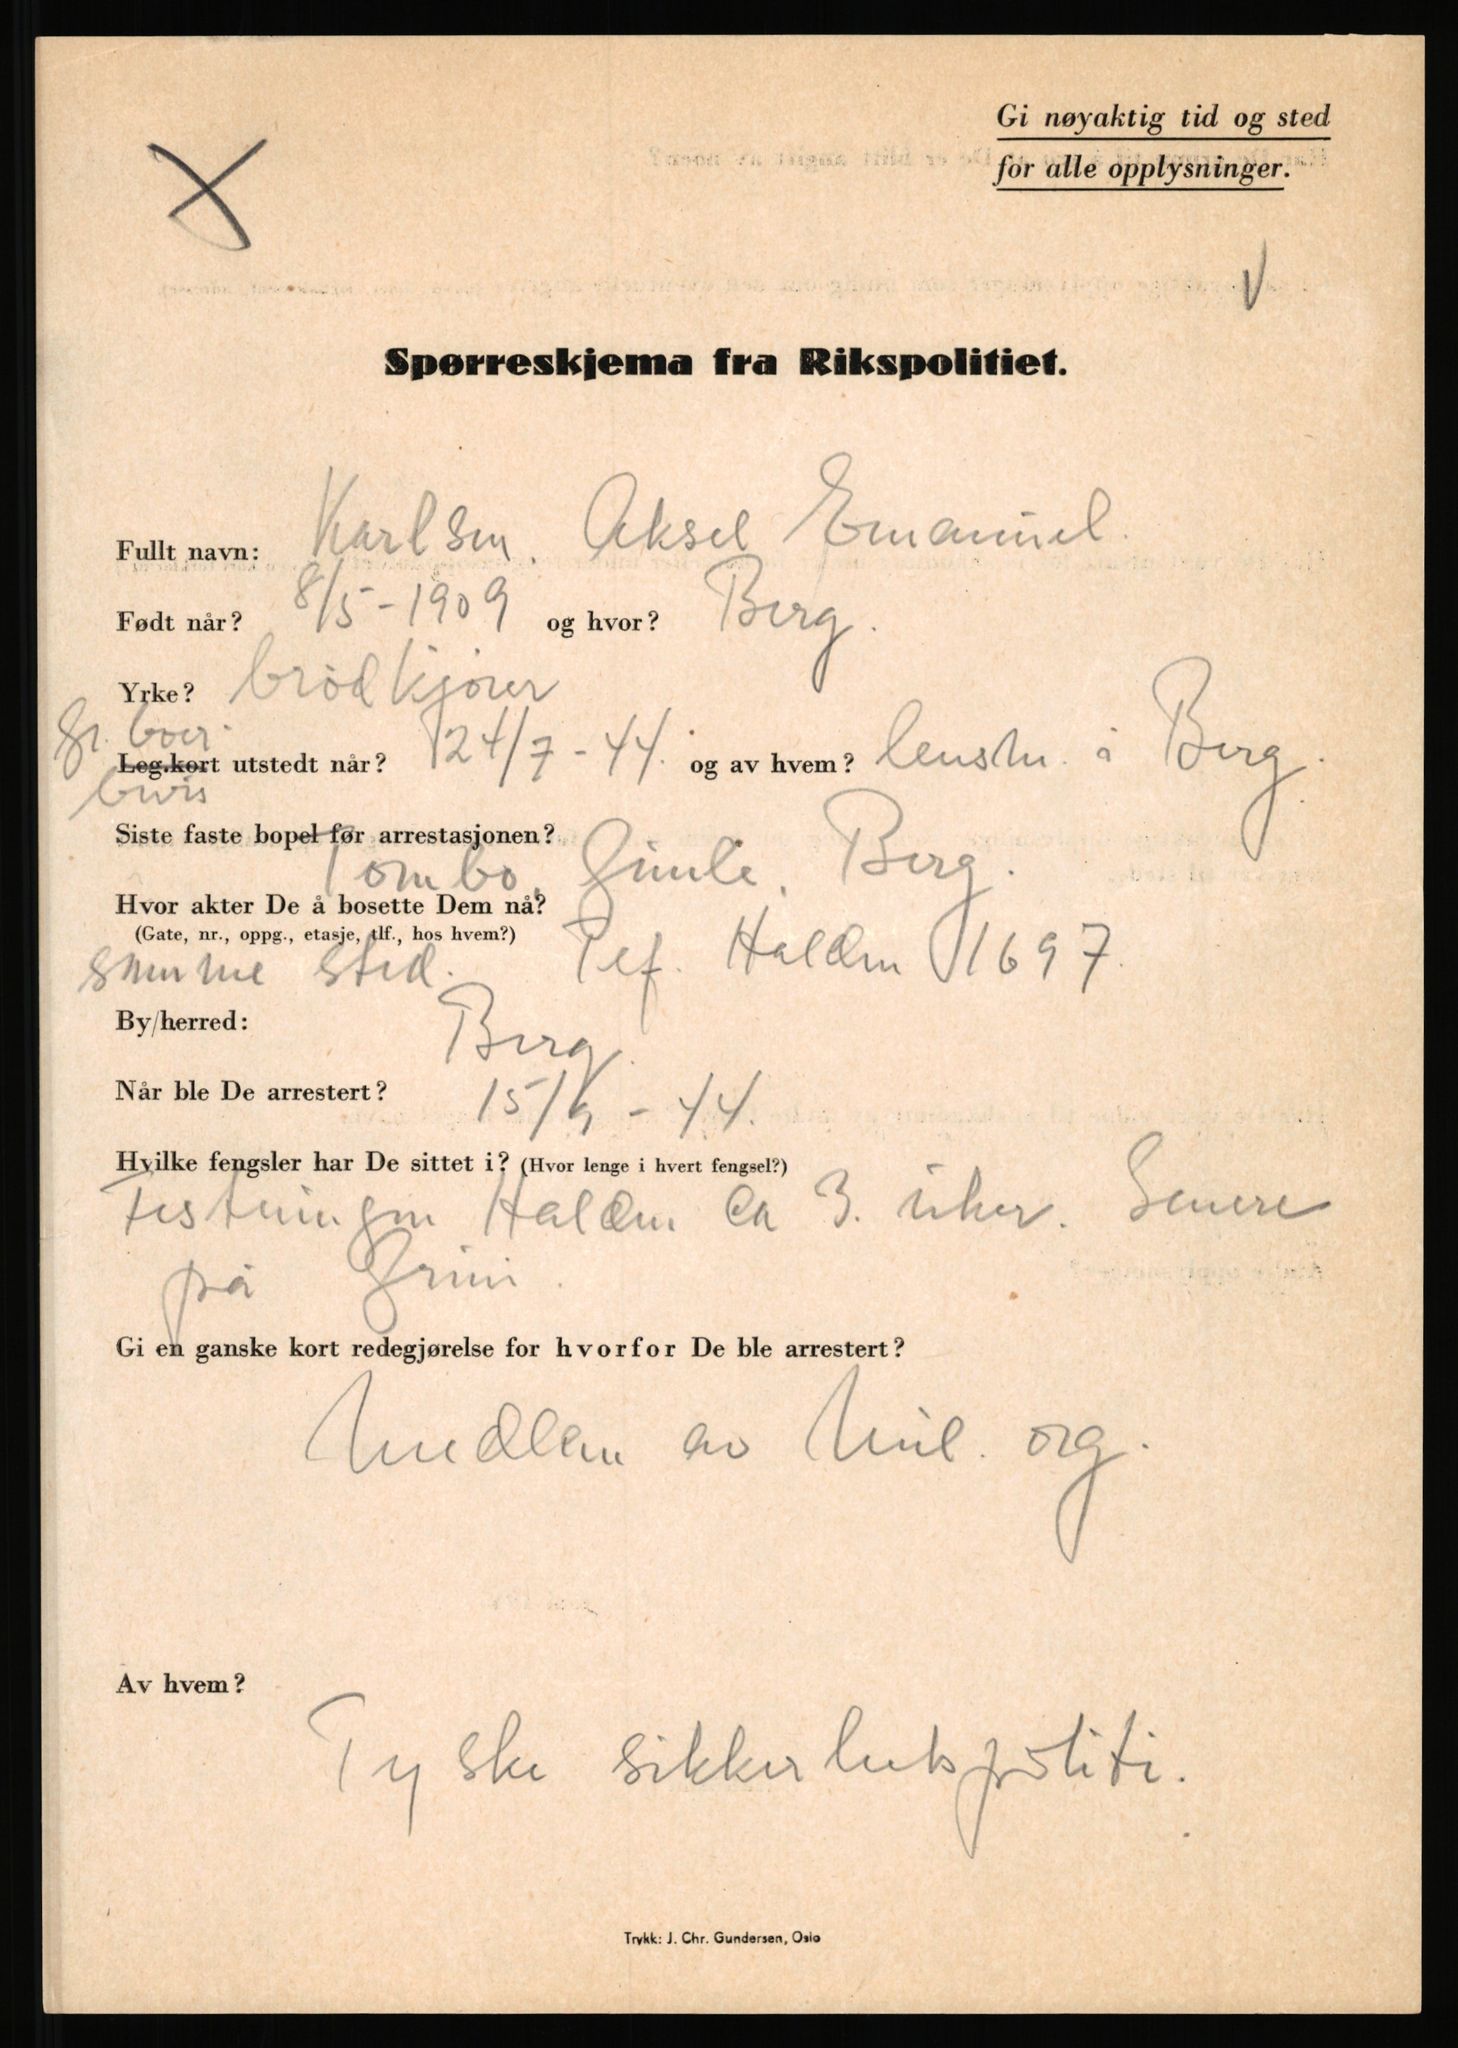 Gi nøyaktig tid og sted
for alle opplysninger.
Spørreskjema fra Rikspolitiet.
Fullt navn: Karlsen. Aksel Emanuel.
Født når? 8/5-1909 og hvor? Berg.
Yrke? brødkjører
gr. boer
Leg.kort utstedt når? 24/7-44. og av hvem? lensm. i Berg.
bevis
Siste faste bopel før arrestasjonen?
Tombo, Gimle, Berg.
Hvor akter De å bosette Dem nå?
(Gate, nr., oppg., etasje, tlf., hos hvem?)
samme sted. Telf. Halden 1697.
By/herred: Berg.
Når ble De arrestert? 15/9-44.
Hvilke fengsler har De sittet i? (Hvor lenge i hvert fengsel?)
Festningen Halden ca 3. uker. Senere
på Grini.
Gi en ganske kort redegjørelse for hvorfor De ble arrestert?
Medlem av Mil. org.
Av hvem?
Tyske sikkerhetspoliti.
Trykk: J. Chr. Gundersen, Oslo